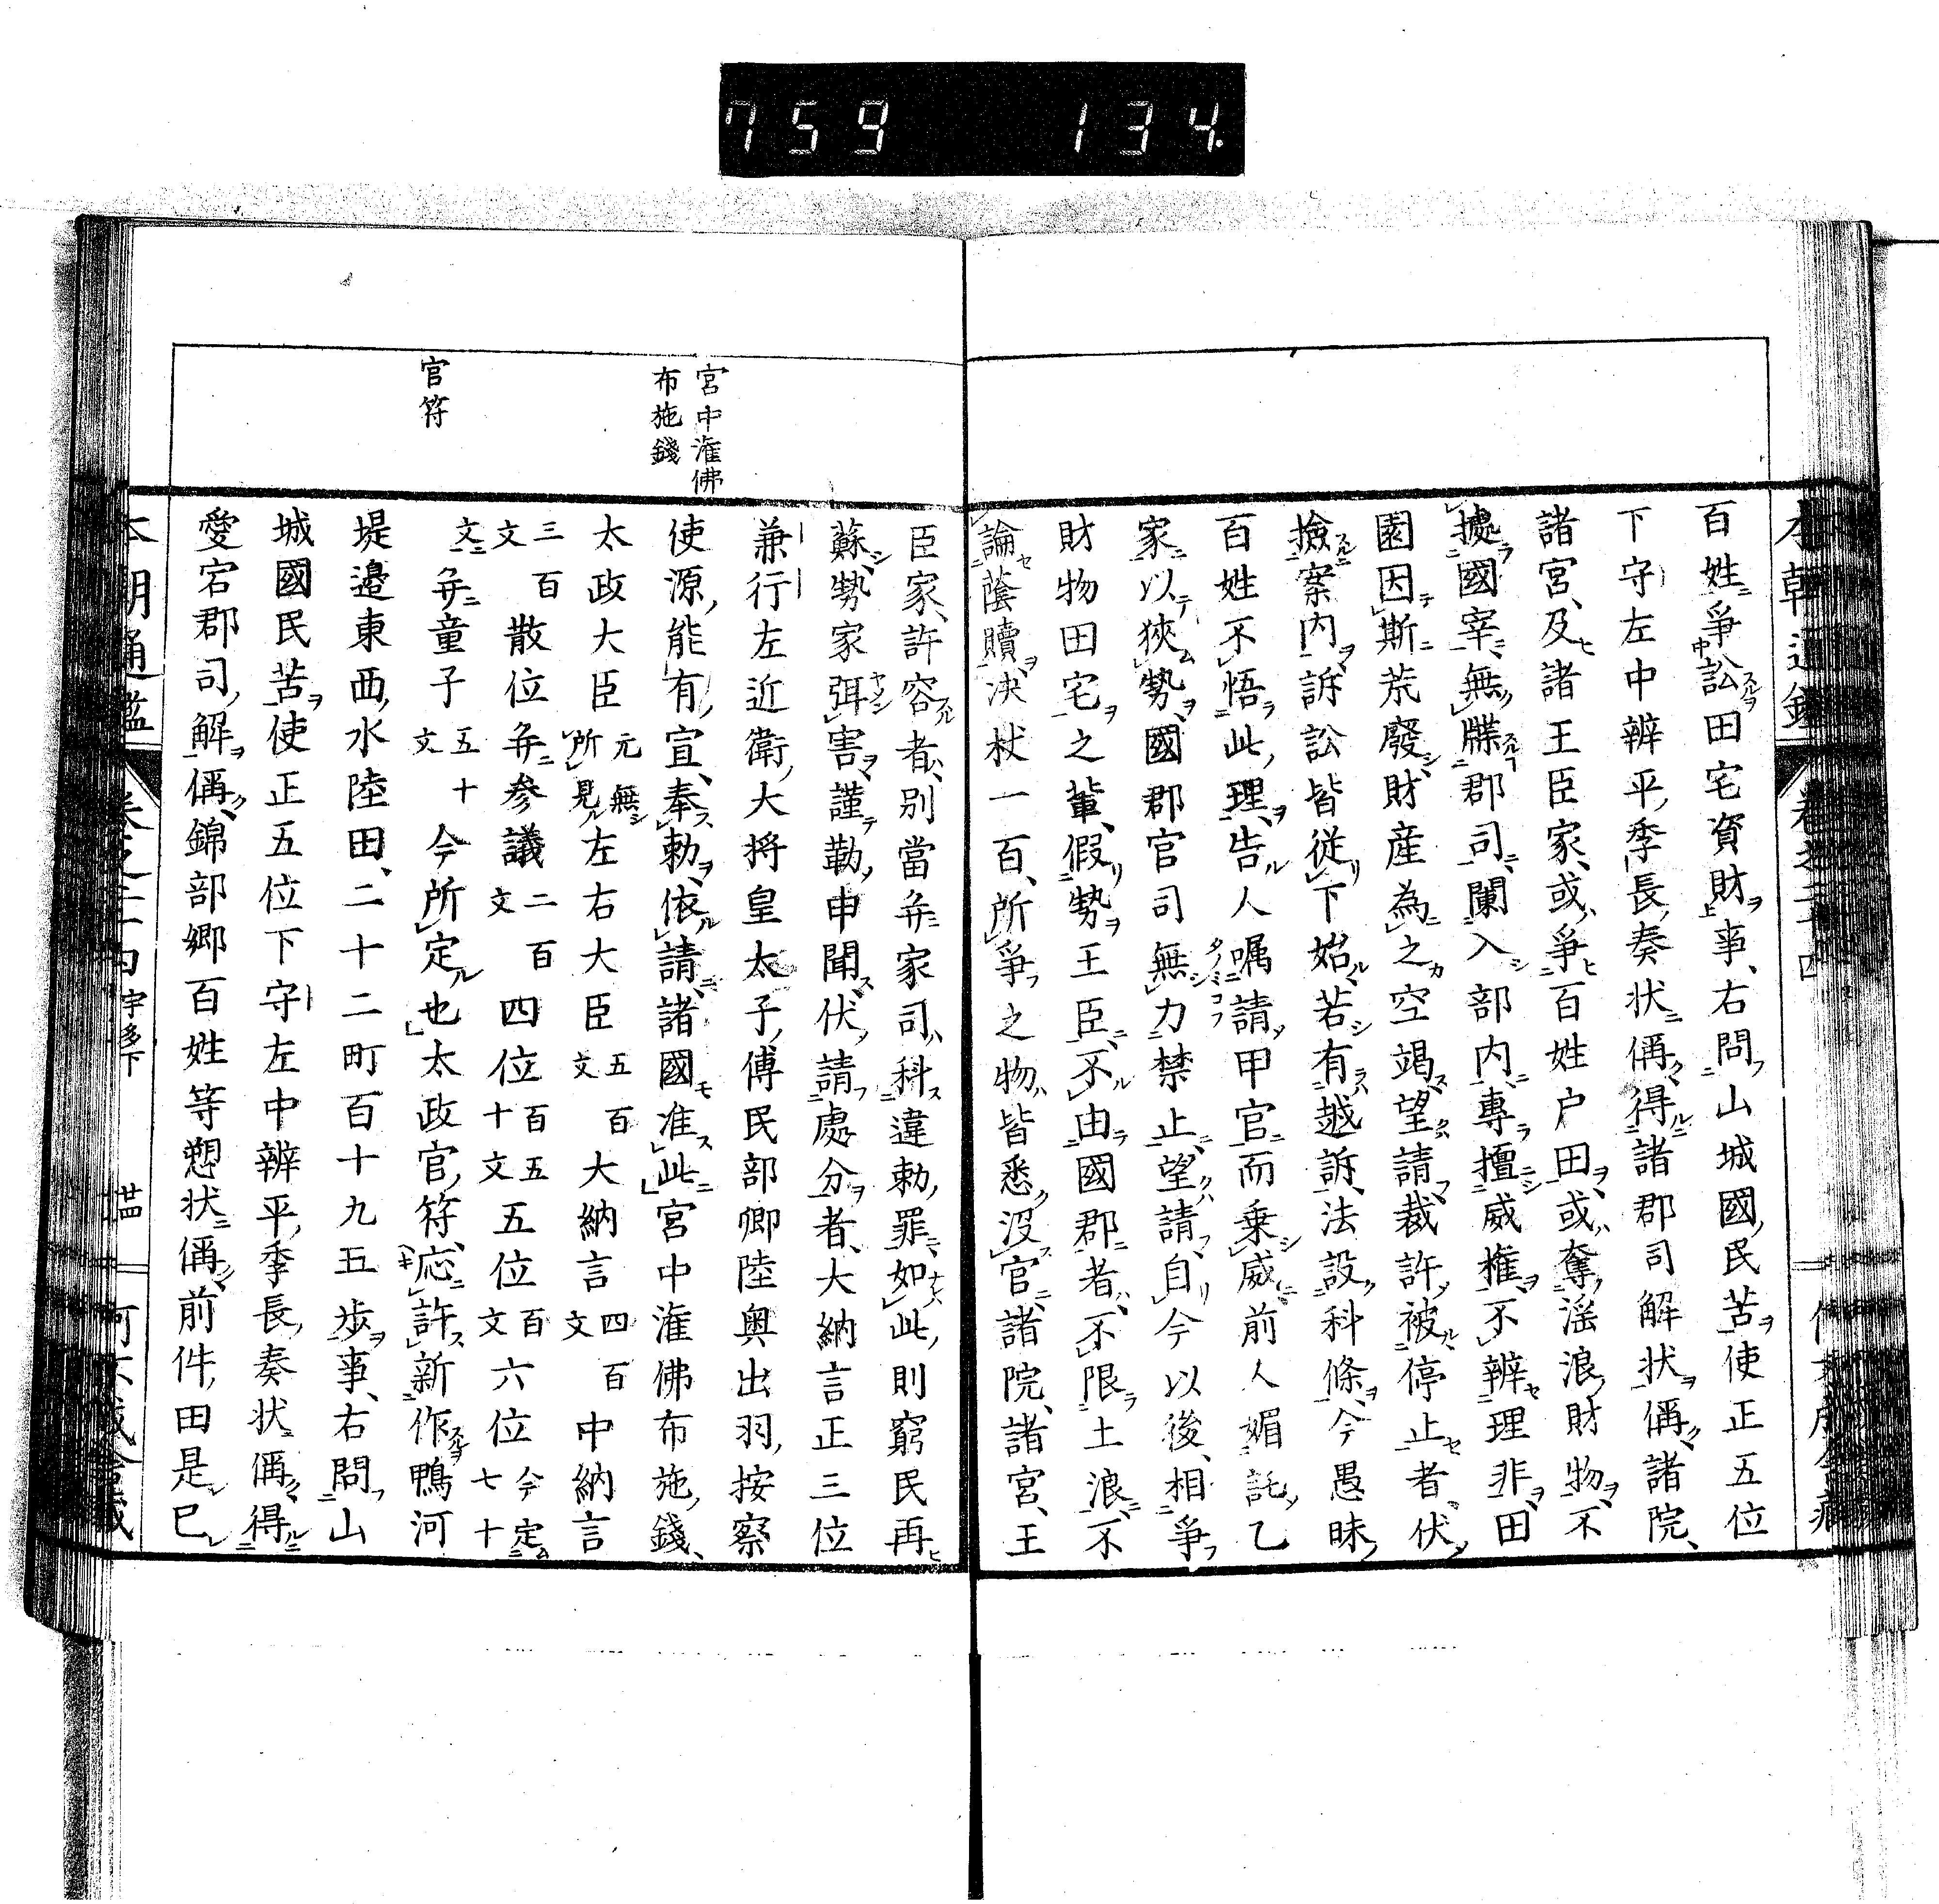 759 134.
百姓爭訟田宅資財事、右問山城國民苦使正五位
下守左中辨平季長奏状偁得諸郡司解状偁諸院、
諸宮、及諸王臣家、或爭百姓户田、或奪滛浪財物、不
據國宰、無牒郡司、闌入部内、專擅威権、不辨理非、田
園因斯荒廢、財産為之空竭、望請裁許、被停止者、伏
撿案内、訴訟皆從下始、若有越訴、法設科條、今愚昧
百姓不悟此理、告人嘱請、甲官而乗威前人媚託、乙
家以狹勢、國郡官司無力禁止、望請、自今以後、相爭
財物田宅之輩、假勢王臣、不由國郡者、不限土浪、不
論蔭贖、决杖一百、所爭之物、皆悉没官、諸院、諸宮、王
宮中潅佛
布施錢
官符
臣家、許容者、別當并家司、科違勅罪、如此、則窮民再
蘇、勢家弭害、謹勒申聞、伏請處分者、大納言正三位
兼行左近衛大将皇太子傅民部卿陸奥出羽按察
使源能有宣、奉勅、依請、諸國准此宮中潅佛布施錢、
太政大臣元無所見左右大臣五百文大納言四百文中納言
三百文散位并参議二百文四位百五十文五位百文六位今定七十
文并童子五十文今所定也太政官符、応許新作鴨河
堤邉東西水陸田、二十二町百十九五歩事、右問山
城國民苦使正五位下守左中辨平季長奏状偁得
愛宕郡司解偁、錦部郷百姓等愬状偁前件田是巳
本朝通鑑 卷之二十四 宇多下